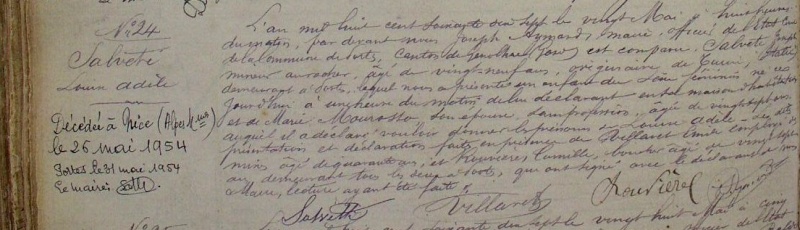 N° 24
Salvéti
Louise adèle
Décédée à Nice (Alpes Mmes)
le 26 mai 1954
Portes le 31 mai 1954
Le maire:
L'an mil huit cent soixante dix sept le vingt Mai à huit heures
du matin, par devant nous Joseph Aymard, maire, officier de l'Etat Civil
de la Commune de Portes, Canton de Génolhac (Gard) est comparu Salvéti Joseph
mineur au rocher, âgé de vingt neuf ans, originaire de
demeurant à Portes, lequel nous a présenté un enfant du Sexe féminin né ce
jourd'hui à une heure du matin, de lui déclarant en sa maison d'habitation
et de Marie Mourotto Son épouse, Sans profession, âgée de vingt sept ans
auquel il a déclaré vouloir donner les prénoms de Louise adèle
présentation et déclaration faites en présence de Villaret Emile employé aux
mines âgé de quarante ans, et Rouvière, Camille, boucher âgé de vingt sept
ans, demeurant tous les deux à Portes, qui ont signé avec le déclarant et nous
Maire, lecture ayant été faite
Salvetti Villaret Rouvière
N° 25
soixante dix sept le vingt huit Mai à cinq